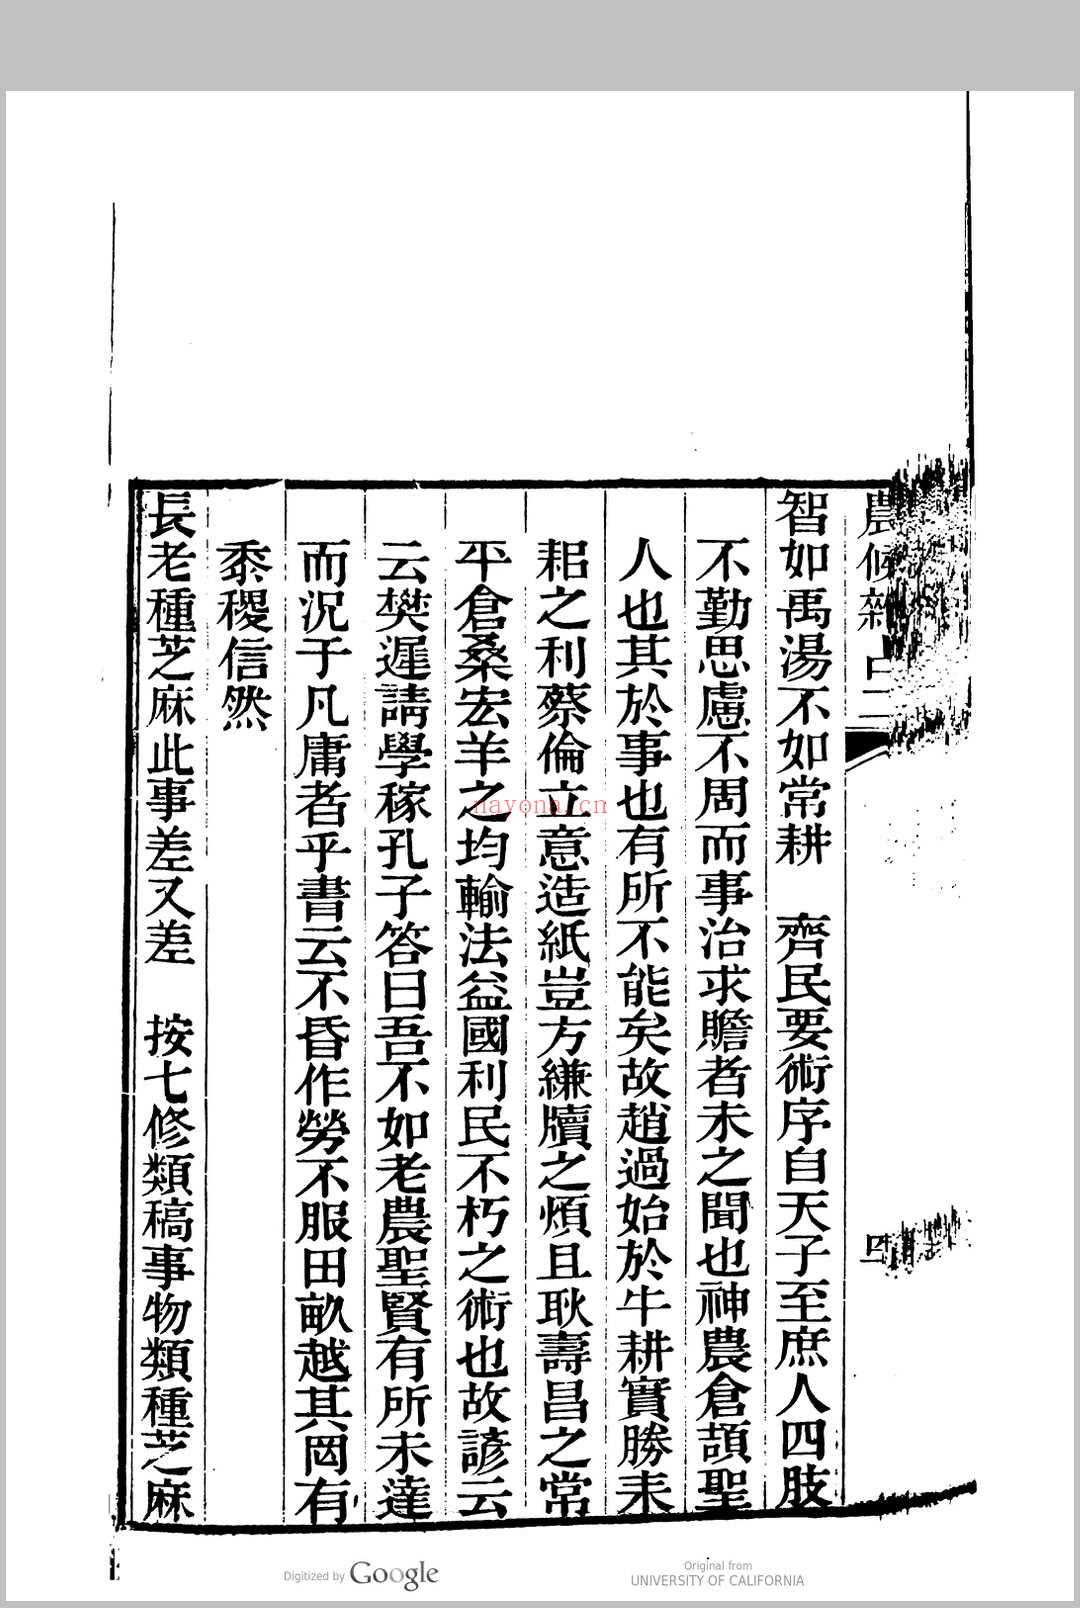 農候雜占二
四
智如禹湯不如常耕　齊民要術序自天子至庶人四肢
不勤思慮不周而事治求贍者未之聞也神農倉頡聖
人也其於事也有所不能矣故趙過始於牛耕實勝耒
耜之利蔡倫立意造紙豈方縑牘之煩且耿壽昌之常
平倉桑宏羊之均輸法益國利民不朽之術也故諺云
云樊遲請學稼孔子答曰吾不如老農聖賢有所未達
而況于凡庸者乎書云不昏作勞不服田畝越其罔有
黍稷信然
長老種芝麻此事差又差　按七修類稿事物類種芝麻
nayona.cn
Digitized by Google
Original from
UNIVERSITY OF CALIFORNIA